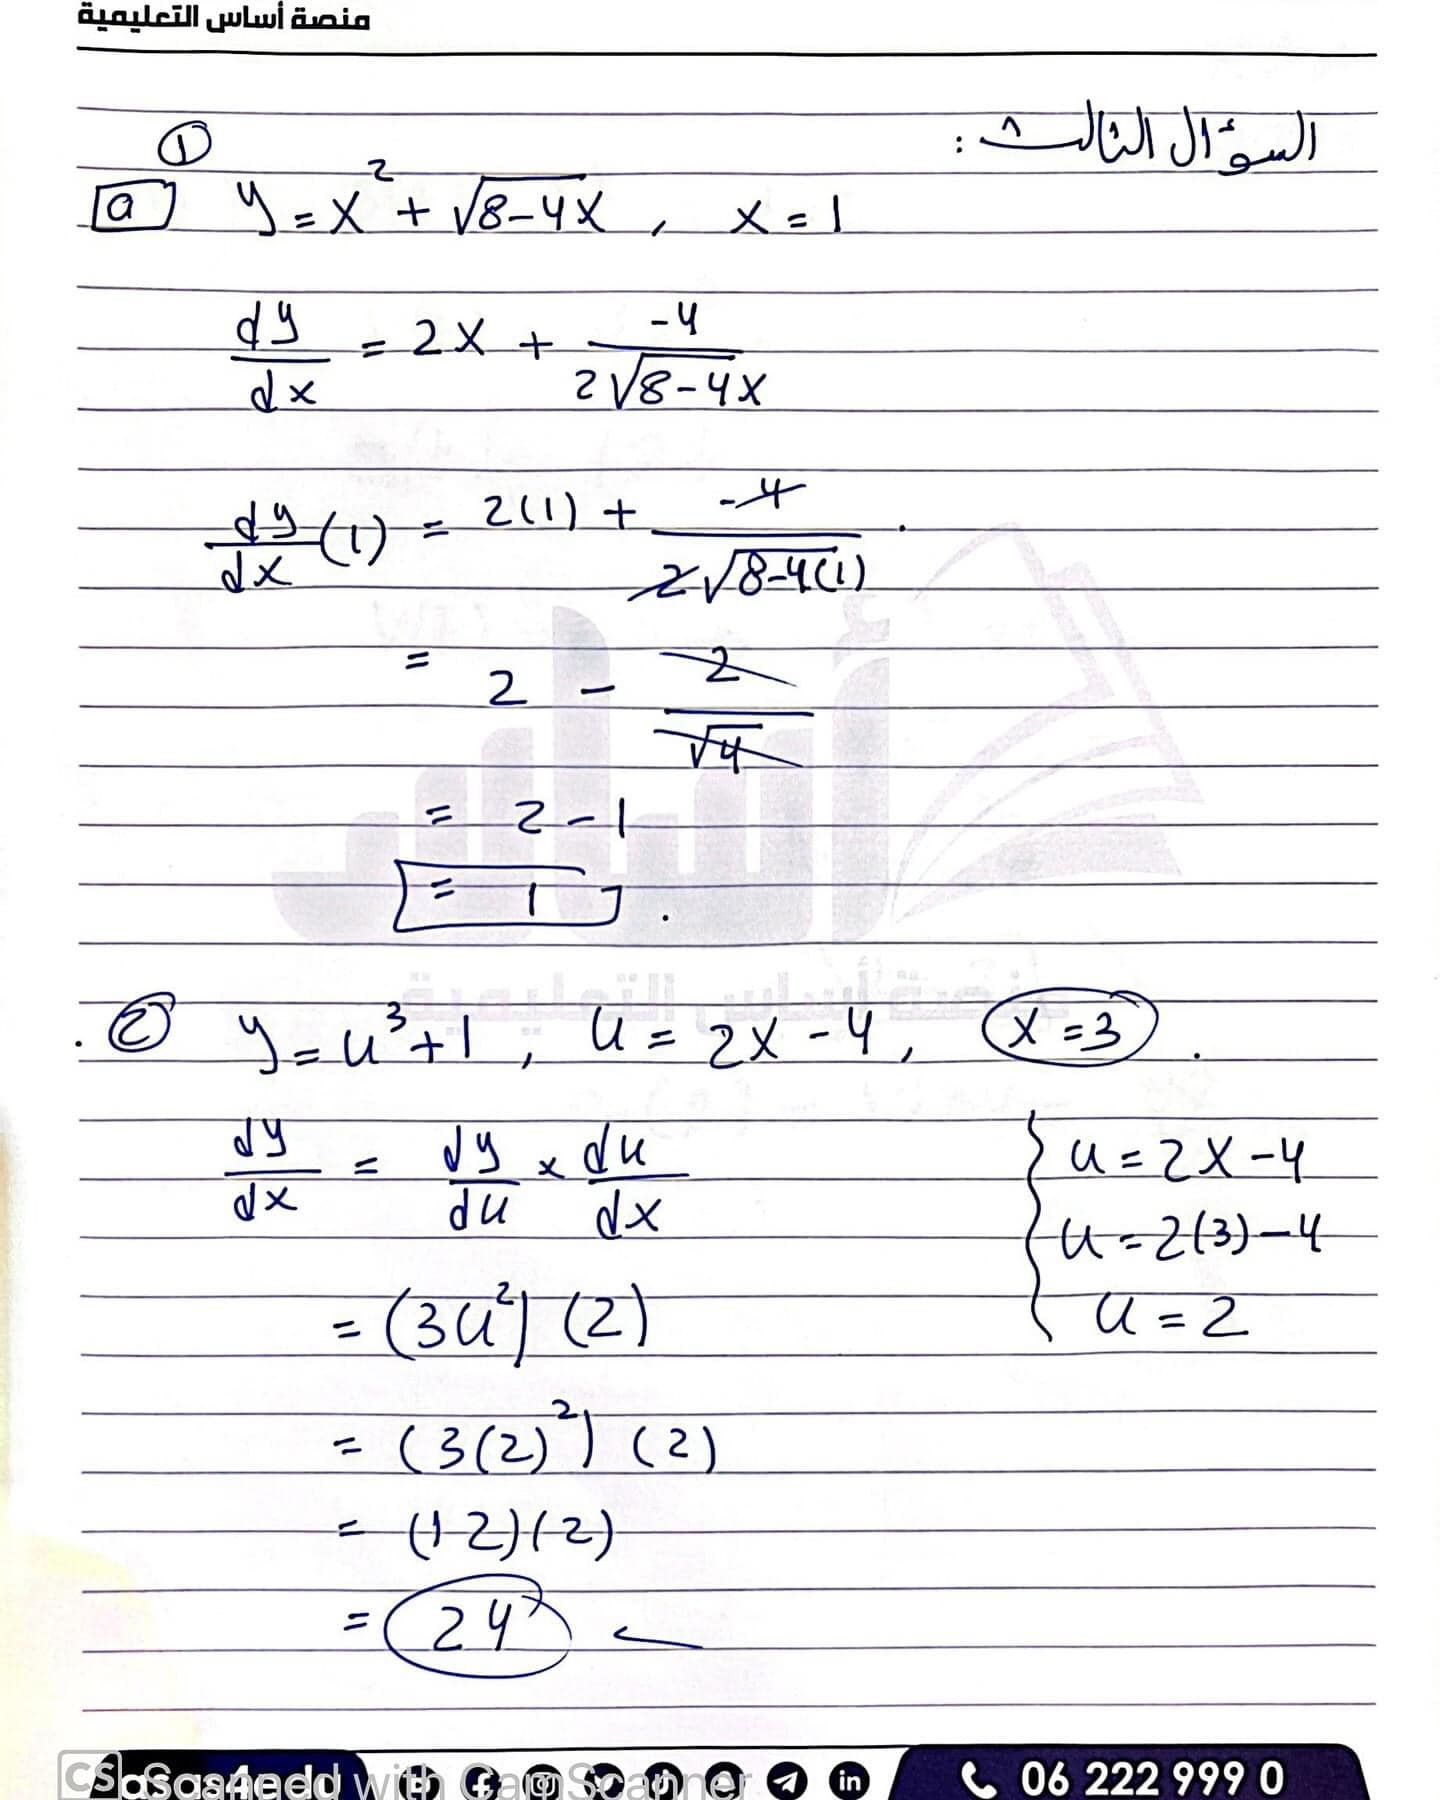 منصة أساس التعليمية
السؤال الثالث :
①
a y = x² + √8-4x , x = 1
dy/dx = 2x + -4/2√8-4x
dy/dx (1) = 2(1) + -4/2√8-4(1)
= 2 - 2/√4
= 2 - 1
= 1 .
منصة أساس التعليمية
② y = u³+1 , u = 2x - 4 , x = 3 .
dy/dx = dy/du × du/dx
u = 2x - 4
u = 2(3) - 4
u = 2
= (3u²) (2)
= (3(2)²) (2)
= (12)(2)
= 24
CS Scanned with CamScanner
06 222 999 0